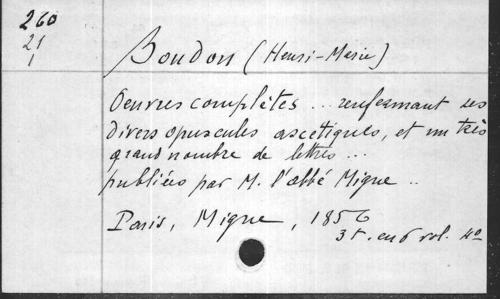 260
21
1
Boudon (Henri-Marie)
Oeuvres complètes ... renfermant ses
divers opuscules ascétiques, et un très
grand nombre de lettres ...
publiées par M. l'abbé Migne ..
Paris, Migne, 1856
3 t. en 6 vol. 4º